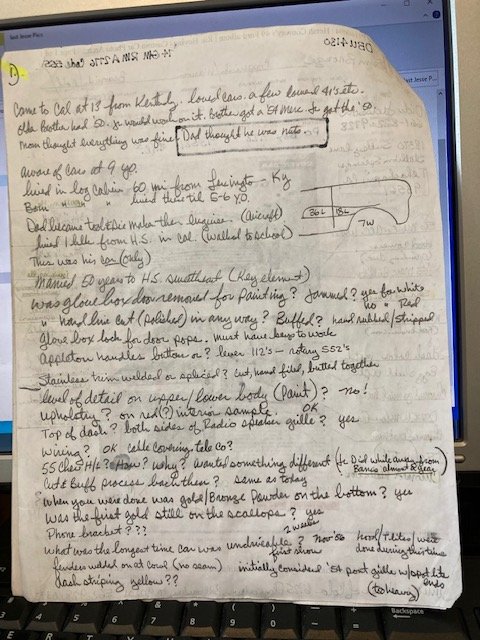 last Jesse Pics
last Jesse P...
①
Came to Cal at 13 from Kentucky. loved cars. a few lowered 41's etc.
older Brother had '50. Jr would work on it. Brother got a '54 Merc. Jr got the '50.
Mom thought everything was fine. Dad thought he was nuts.
aware of cars at 9 yo.
lived in log cabin 60 mi from Lexington - Ky
Born " " " lived there til 5-6 YO.
Dad became tool & die maker then engineer (aircraft)
lived 1 blk from H.S. in Cal. (walked to school)
This was his car (only)
36L 18L
7W
Married 50 years to HS sweetheart (Key element)
was glove box door removed for painting? Jammed? yes for white
no " Red
" hand line cut (polished) in any way? Buffed? hand rubbed/striped
Glove box lock for door pops. must have keys to work
Appleton handles bottom or? lever 112's - rotary 552's
Stainless trim welded or spliced? Cut, hand filed, butted together
level of detail on upper/lower body (paint)? no!
upholstry? on red(?) interior sample. OK
Top of dash? both sides of Radio speaker grille? yes
wiring? OK cable covering tele co?
55 Chev H/L? How? why? wanted something different (Jr Did while away from
Barris almost 2 Yrs)
Cut & Buff process back then? same as today
when you were done was gold/Bronze Powder on the bottom? yes
Was the first gold still on the scallops? yes
Phone bracket???
2 weeks
what was the longest time car was undriveable? Nov '56 hood/T-lites/were
first show done during this time
fenders welded on at cowl (no seam) initially considered '54 pont grille w/spot lite ends
dash striping yellow?? (too heavy)
Backspace